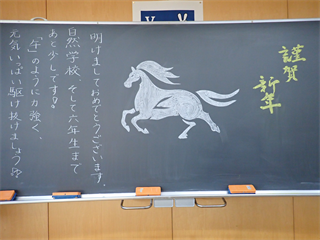 謹賀
新年
明けましておめでとうございます。
自然学校、そして六年生まで
あと少しです。
「午」のように力強く、
元気いっぱい駆け抜けましょう